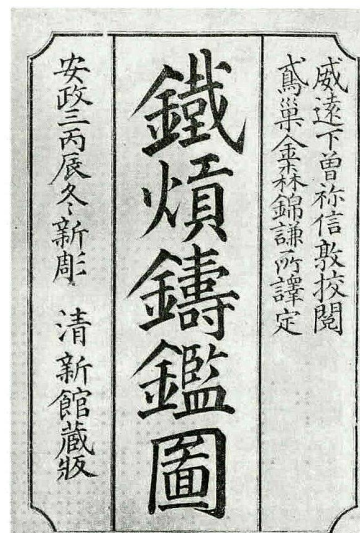 威遠下曽祢信敦挍閲
鳶巣金森錦謙所譯定
鐵熕鑄鑑圖
安政三丙辰冬新彫　清新館蔵版